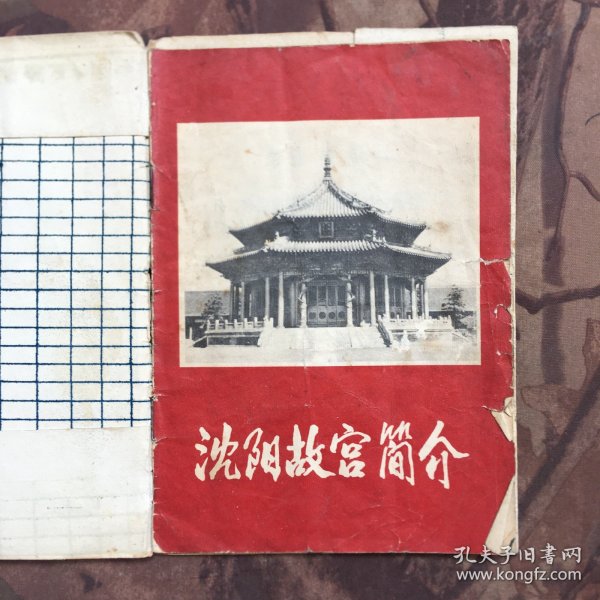 沈阳故宫简介
孔夫子旧书网
www.kongfz.com